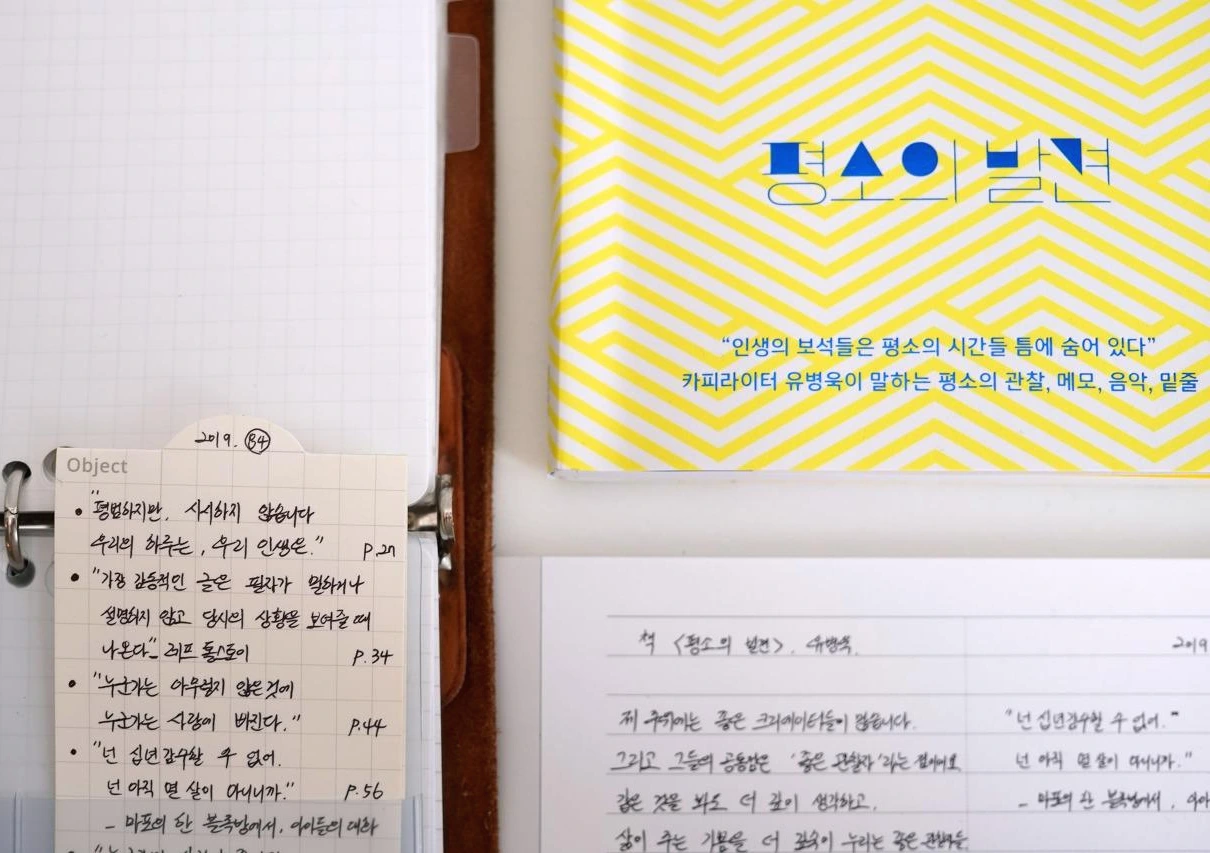 평소의 발견
“인생의 보석들은 평소의 시간들 틈에 숨어 있다”
카피라이터 유병욱이 말하는 평소의 관찰, 메모, 음악, 밑줄
2019. 84
Object
• "평범하지만, 시시하지 않습니다
우리의 하루는, 우리 인생은." P.27
• "가장 감동적인 글은 필자가 말하거나
설명하지 않고 당시의 상황을 보여줄 때
나온다" 레프 톨스토이 P.34
• "누군가는 아무렇지 않은 것에
누군가는 사랑에 빠진다." P.44
• "넌 십년감수할 수 없어.
넌 아직 열 살이 아니니까." P.56
- 마포의 한 블록방에서, 아이들의 대화
책 <평소의 발견>. 유병욱. 2019
제 주위에는 좋은 크리에이터들이 많습니다.
그리고 그들의 공통점은 '좋은 관찰자'라는 점이에요
같은 것을 봐도 더 깊이 생각하고,
삶이 주는 기쁨을 더 깊숙이 누리는 좋은 관찰자들
"넌 십년감수할 수 없어."
넌 아직 열 살이 아니니까."
- 마포의 한 블록방에서,